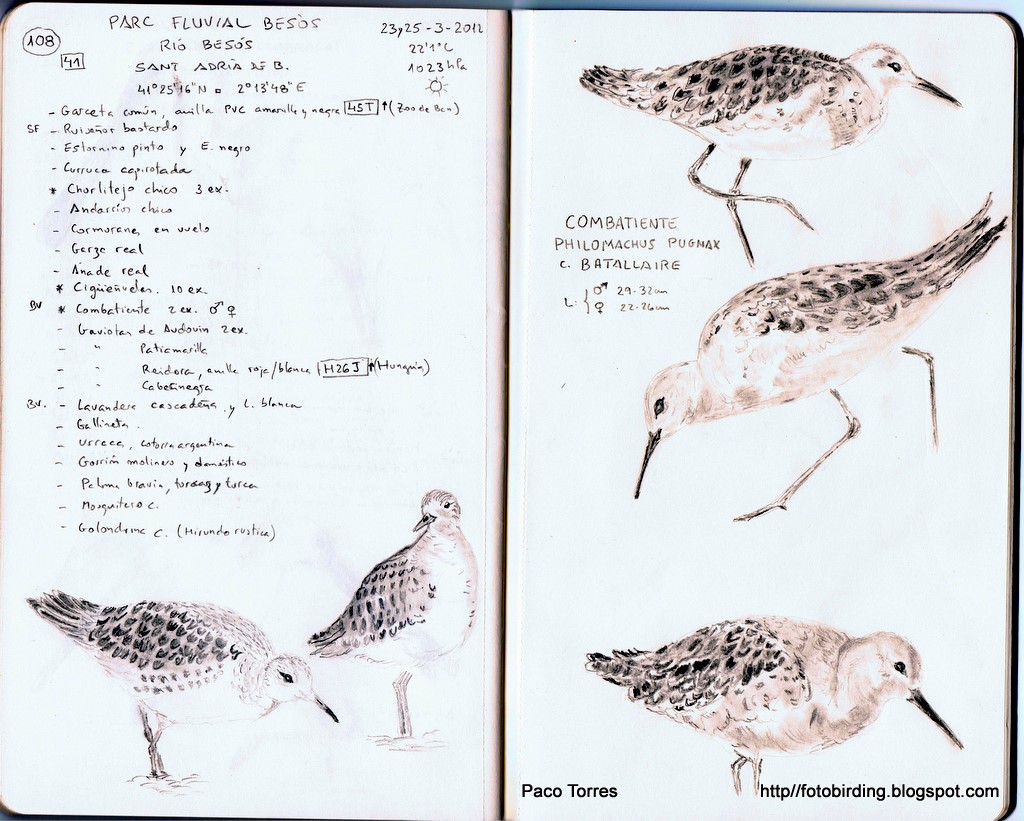 108
41
PARC FLUVIAL BESÒS
RIO BESÓS
SANT ADRIÀ DE B.
41º25'16"N 2º13'48"E
23y25-3-2012
22'1ºC
1023 hPa
- Garceta común, anilla PVC amarilla y negra 45T ↑ (Zoo de Bcn)
SF - Ruiseñor bastardo
- Estornino pinto y E. negro
- Curruca capirotada
* Chorlitejo chico 3 ex.
- Andarríos chico
- Cormoranes en vuelo
- Garza real
- Ánade real
* Cigüeñuelas. 10 ex.
BV * Combatiente 2 ex. ♂ ♀
- Gaviotas de Audouin 2 ex.
- " Patiamarilla
- " Reidora, anilla roja/blanca H26J ↑ (Hungría)
- " Cabecinegra
BV. - Lavandera cascadeña y L. blanca
- Gallineta.
- Urraca, cotorra argentina
- Gorrión molinero y doméstico
- Paloma bravía, torcaz y turca
- Mosquitero c.
- Golondrina c. (Hirundo rustica)
COMBATIENTE
PHILOMACHUS PUGNAX
C. BATALLAIRE
L: { ♂ 29-32cm
♀ 22-26cm
Paco Torres
http//fotobirding.blogspot.com